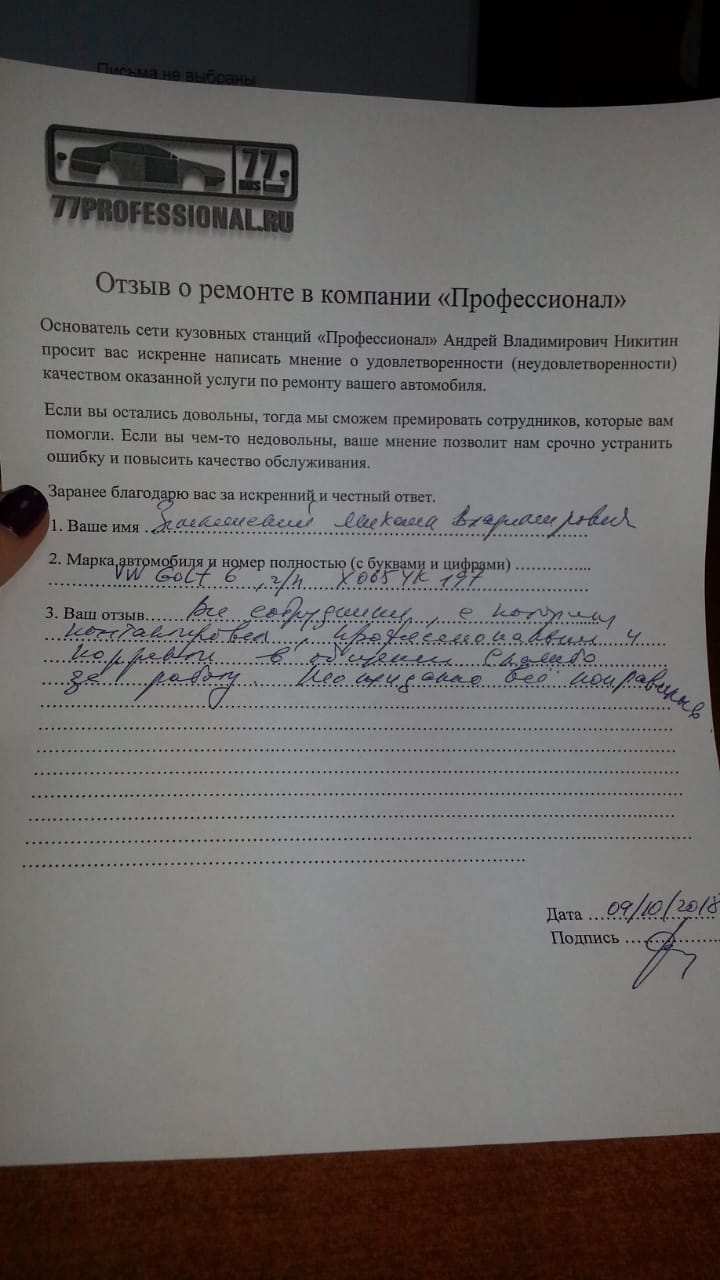 Письма не выбраны
77
RUS
77PROFESSIONAL.RU
Отзыв о ремонте в компании «Профессионал»
Основатель сети кузовных станций «Профессионал» Андрей Владимирович Никитин
просит вас искренне написать мнение о удовлетворенности (неудовлетворенности)
качеством оказанной услуги по ремонту вашего автомобиля.
Если вы остались довольны, тогда мы сможем премировать сотрудников, которые вам
помогли. Если вы чем-то недовольны, ваше мнение позволит нам срочно устранить
ошибку и повысить качество обслуживания.
Заранее благодарю вас за искренний и честный ответ.
1. Ваше имя Владимирович
2. Марка автомобиля и номер полностью (с буквами и цифрами)
VW Golf 6, г/н Х065УК 197
3. Ваш отзыв Все сотрудники, с которыми
контактировал, профессиональны и
корректны в общении Спасибо
за работу. Неожиданно всё понравилось
Дата 09/10/2018
Подпись